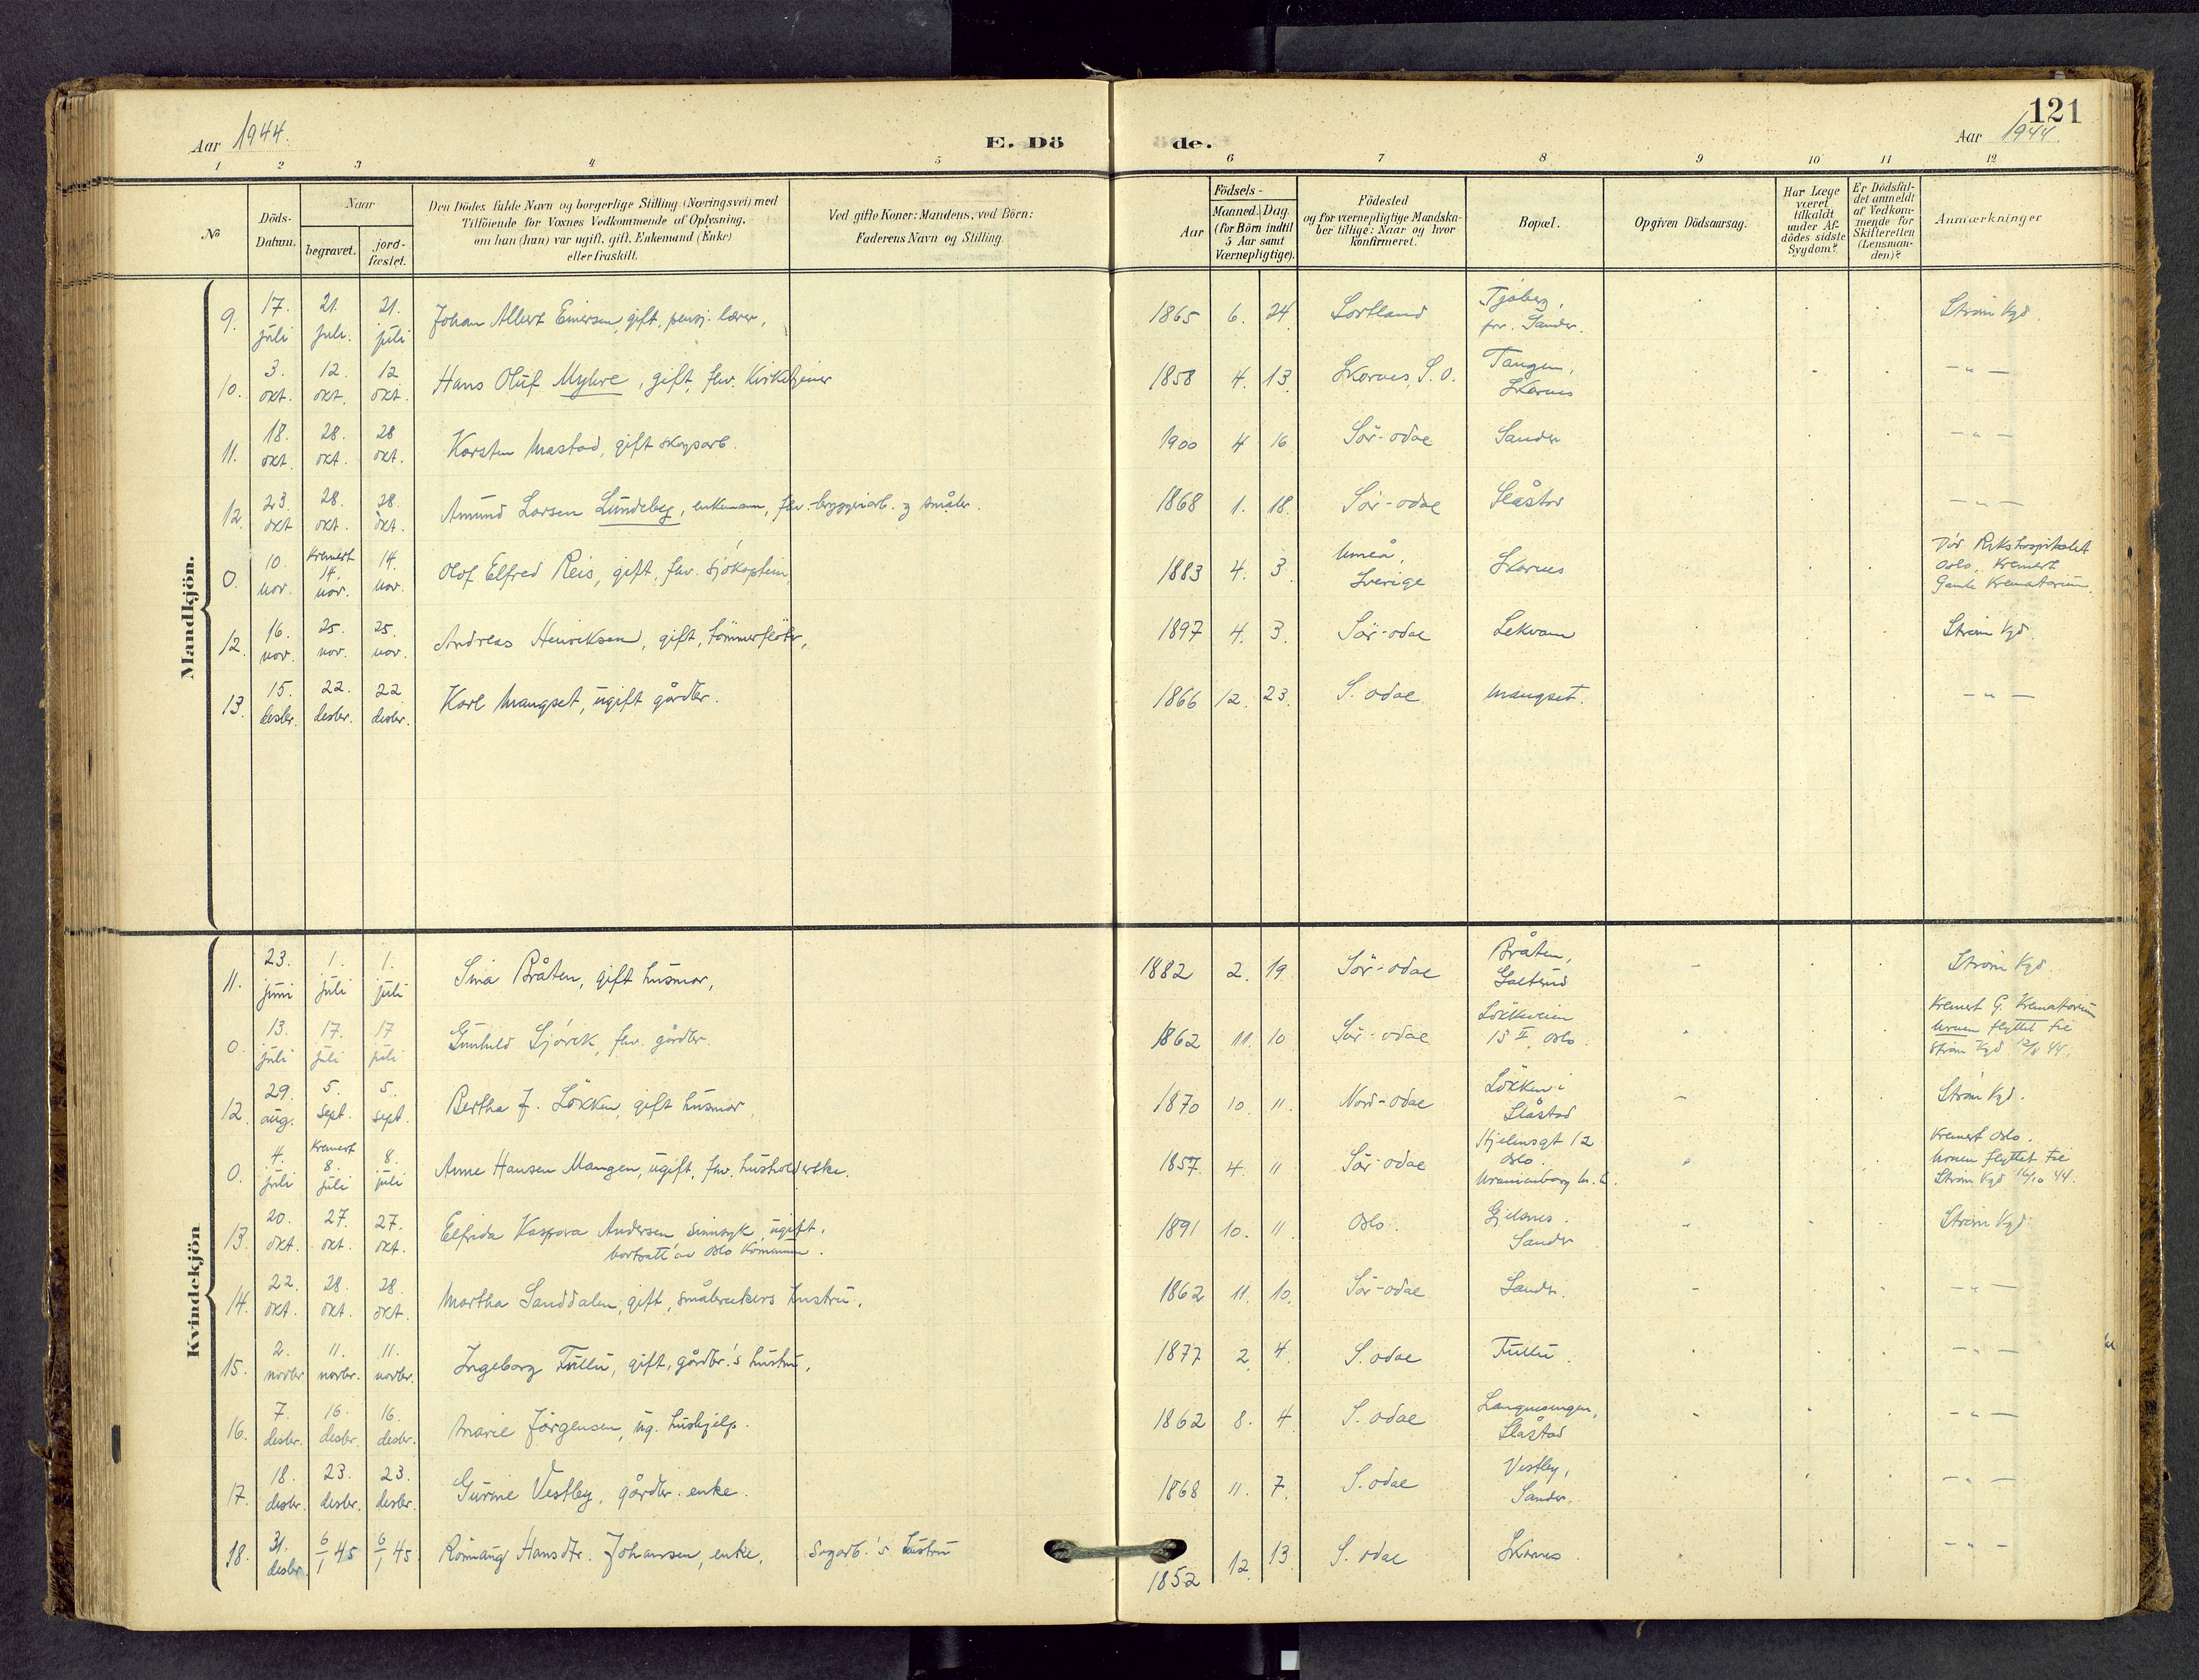 Aar 1944.
E. Döde.
121
Aar 1944
1 2 3 4 5 6 7 8 9 10 11 12
No
Döds-Datum.
Naar
begravet.
jord-fæstet.
Den Dödes fulde Navn og borgerlige Stilling (Næringsvei) med
Tilföiende for Voxnes Vedkommende af Oplysning,
om han (hun) var ugift, gift, Enkemand (Enke)
eller fraskilt.
Ved gifte Koner: Mandens, ved Börn:
Faderens Navn og Stilling.
Födsels-
Aar
Maaned. Dag.
(for Börn indtil
5 Aar samt
Værnepligtige).
Födested
og for værnepligtige Mandska-
ber tillige: Naar og hvor
konfirmeret.
Bopæl.
Opgiven Dödsaarsag.
Har Læge
været
tilkaldt
under Af-
dödes sidste
Sygdom?
Er Dödsfal-
det anmeldt
af Vedkom-
mende for
Skifteretten
(Lensman-
den)?
Anmærkninger
Mandkjön.
9. 17. juli 21. juli. 21. juli Johan Albert Einersen, gift, pensj. lærer, 1865 6. 24. Sortland Tjåberg, pr. Sander. Strøm kgd.
10. 3. okt. 12. okt. 12 okt. Hans Oluf Myhre, gift, fhv. Kirketjener 1858 4. 13. Skarnes, S. O. Tangen, Skarnes — " —
11. 18. okt. 28. okt. 28 okt. Karsten Mastad, gift skogsarb. 1900 4 16 Sör-odal Sander — " —
12. 23. okt 28. okt. 28. okt. Amund Larsen Lundeby, enkemann, fhv. bryggeriarb. og småbr. 1868 1. 18. Sör-odal Slåstad — " —
0. 10. nov. Kremert 14. nov. 14. nov. Olof Elfred Reis, gift, fhv. sjökaptein, 1883 4. 3. Umeå, Sverige Skarnes Död Rikshospitalet Oslo, Kremert Gamle Krematorium.
12. 16. nov. 25. nov. 25. nov. Andreas Henriksen, gift, tömmerfløter, 1897 4. 3. Sör-odal Lekvam Strøm kgd.
13. 15. desbr. 22. desbr. 22 desbr. Karl Mangset, ugift gårdbr. 1866 12. 23. S. odal Mangset. — " —
Kvindekjön
11. 23. juni 1. juli 1. juli Sina Bråten, gift husmor, 1882 2. 19. Sör-odal Bråten, Galterud Strøm kgd.
0. 13. juli 17. juli 17 juli Gunhild Sjøvek, fhv. gårdbr. 1862 11. 10 Sör-odal Lökkeveien 15 II, Oslo. Kremert G. Krematorium Urnen flyttet til Strøm kgd 12/8 44.
12. 29. aug. 5. sept. 5. sept. Bertha J. Lökken, gift husmor 1870 10. 11. Nord-odal Lökken i Slåstad Strøm kgd.
0. 4. juli Kremert 8. juli 8. juli Anne Hansen Mangen, ugift, fhv. husholderske. 1857. 4. 11 Sör-odal Hjelmsgt 12 Oslo. Uranienborg m.h. Kremert Oslo. Urnen flyttet til Strøm kgd 16/10 44.
13. 20. okt. 27. okt. 27. okt. Elfrida Kaspara Andersen sinnsyk, ugift. bortsatt av Oslo Kommune. 1891 10. 11. Oslo. Gjelsnes. Sander Strøm kgd.
14. 22. okt. 28. okt. 28. okt. Martha Sanddalen, gift, småbrukers hustru. 1862 11. 10. Sör-odal Sander. — " —
15. 2. novbr 11. novbr. 11. novbr. Ingeborg Tullu, gift, gårdbr.'s hustru, 1877 2. 4. S. odal Tullu. — " —
16. 7. desbr. 16. desbr. 16. desbr. Marie Jörgensen, ug. hushjelp. 1862 8. 4 S. odal Slåstad — " —
17. 18. desbr. 23. desbr. 23. desbr. Gurine Vestby, gårdbr. enke. 1868 11. 7. S. odal Vestby, Sander. — " —
18. 31. desbr. 6/1 45 6/1 45 Rönnaug Hansdtr. Johansen, enke, Sagarb.'s hustru 1852 12. 13 S. odal Skarnes. — " —